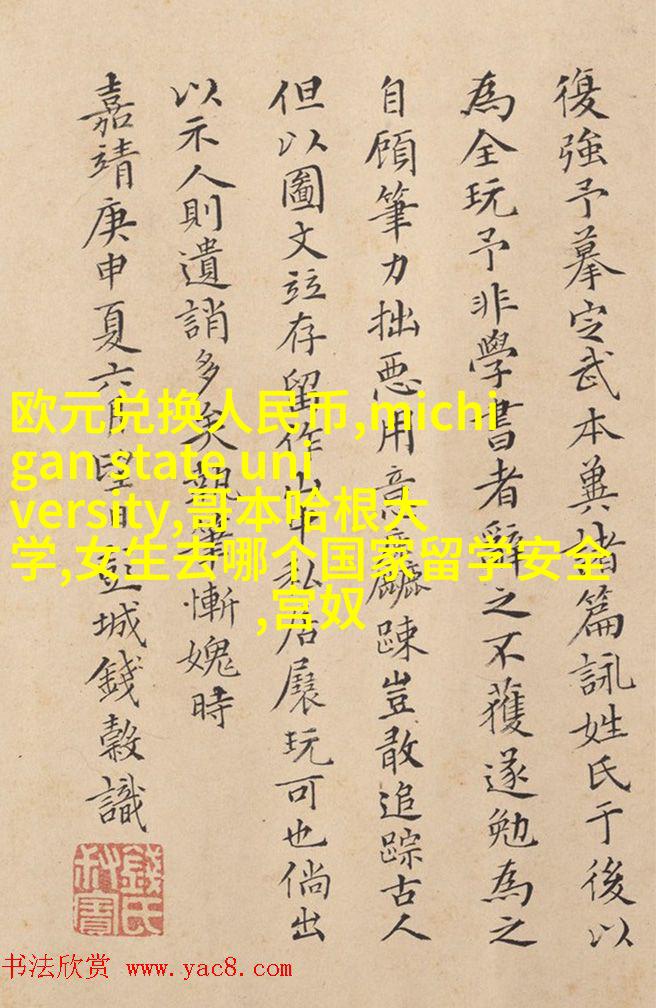 復強予摹定武本兾諸篇詠姓氏于後以
為全玩予非學書者辭之不獲遂勉為之
自顧筆力拙惡用意麤踈豈敢追踪古人
但以圖文竝存留作山中私居展玩可也倘出
以示人則遺誚多矣筆慚媿時
嘉靖庚申夏六月望日彭城錢穀識
錢氏叔寶
欧元兑换人民币,michi
gan state uni
versity,哥本哈根大
学,女生去哪个国家留学安全
,宫奴
书法欣赏 www.yac8.com